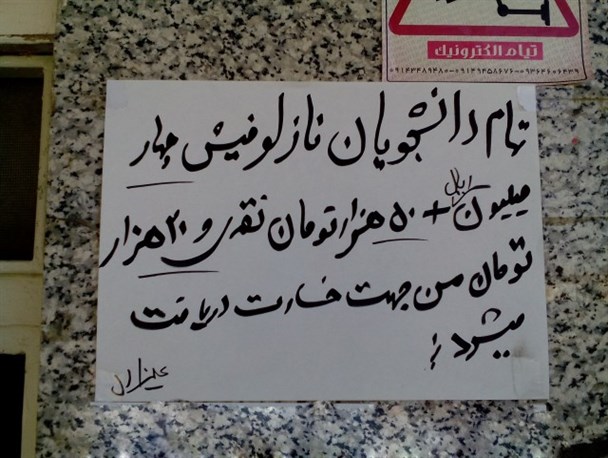 تیام الکترونیک
۰۹۱۴۳۴۸۹۴۸۰-۰۹۱۴۹۴۵۸۶۷۶-۰۹۳۶۴۶۰۶۴۳۹
تمام دانشجویان نازلو فیش چهار
میلیون ریال + ۵۰ هزار تومان نقدی و ۲۰ هزار
تومان من جهت خسارت دریافت
میشود